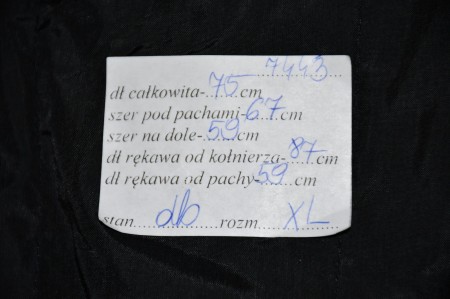 7443
dł całkowita-75cm
szer pod pachami-67cm
szer na dole-59cm
dł rękawa od kołnierza-87cm
dł rękawa od pachy-59cm
stan db rozm XL